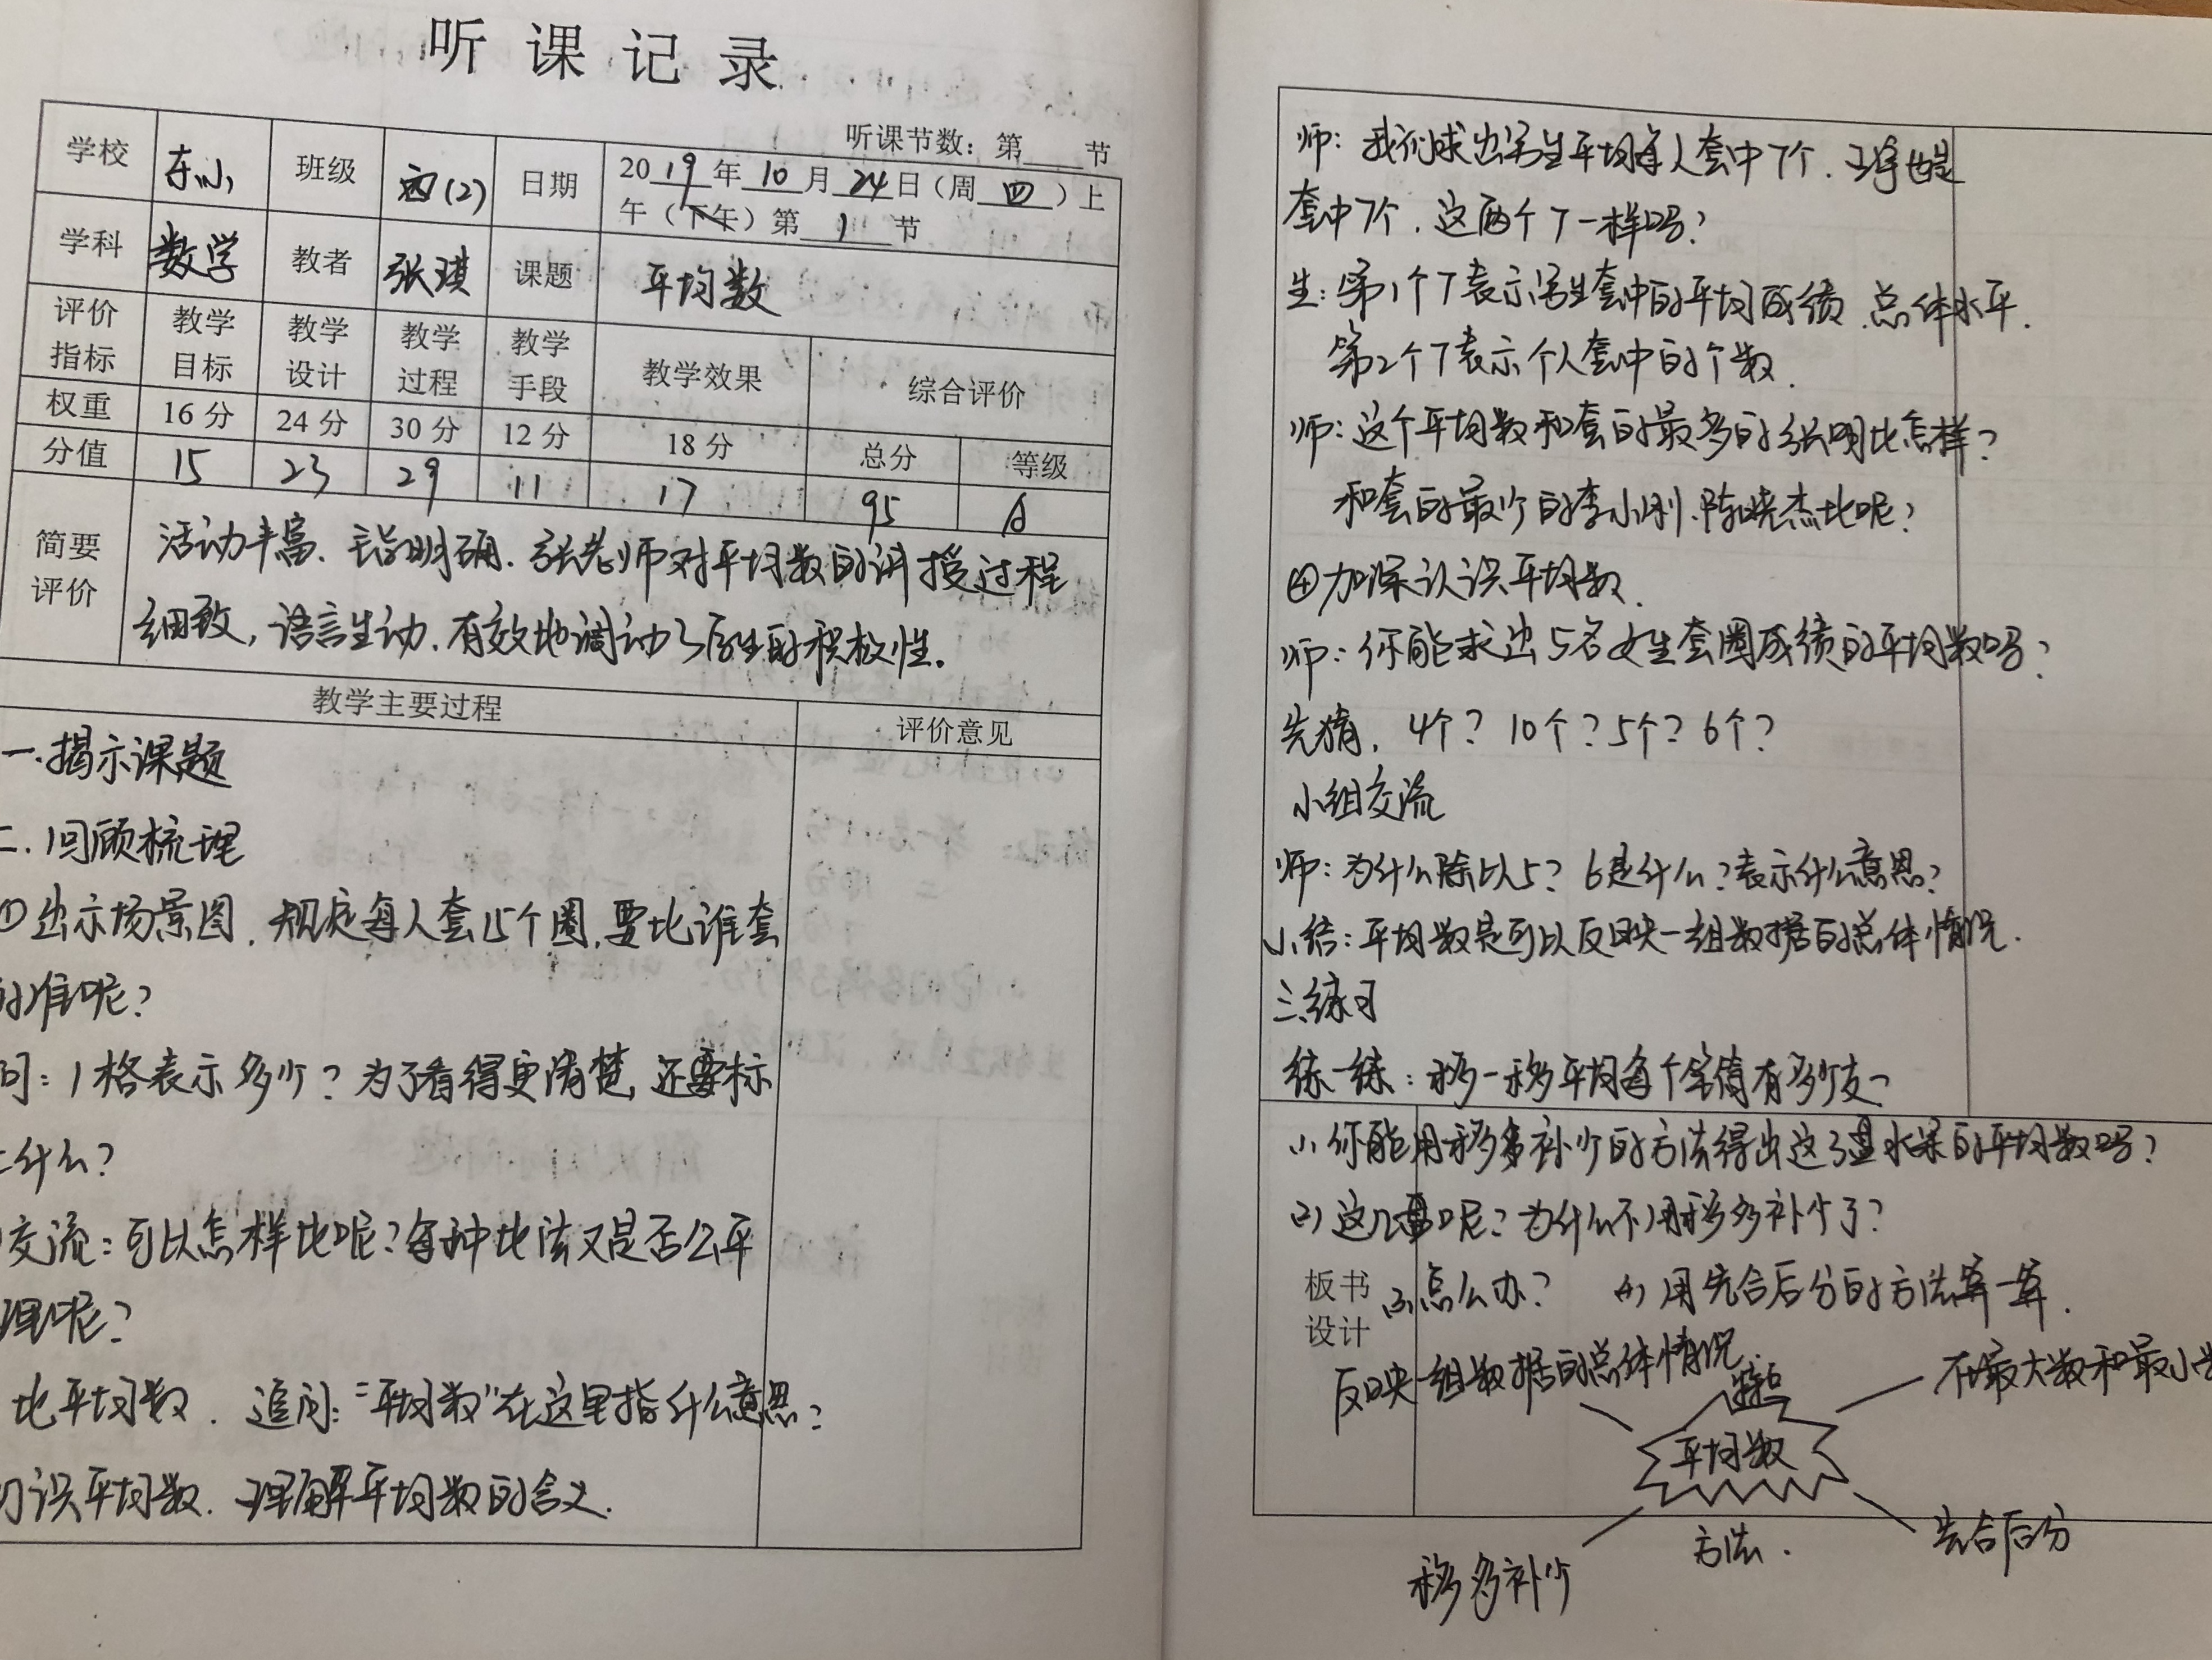 听课记录
听课节数：第___节
学校 东小 班级 四(2) 日期 2019年10月24日（周四）上
午（下午）第1节
学科 数学 教者 张琪 课题 平均数
评价指标 教学目标 教学设计 教学过程 教学手段 教学效果 综合评价
权重 16分 24分 30分 12分 18分 总分 等级
分值 15 23 29 11 17 95 A
简要评价 活动丰富、主旨明确.张老师对平均数的讲授过程
细致，语言生动.有效地调动了学生的积极性。
教学主要过程 评价意见
一.揭示课题
二.回顾梳理
①出示场景图，规定每人套15个圈，要比谁套
的准呢？
问：1格表示多少？为了看得更清楚，还要标
上什么？
交流：可以怎样比呢？每种比法又是否公平
理呢？
比平均数．追问："平均数"在这里指什么意思？
识平均数．理解平均数的含义．
师：我们求出男生平均每人套中7个．王宇也是
套中7个．这两个7一样吗？
生：第1个7表示男生套中的平均成绩、总体水平．
第2个7表示个人套中的个数．
师：这个平均数和套的最多的张明比怎样？
和套的最少的李小刚、陈晓杰比呢？
④加深认识平均数．
师：你能求出5名女生套圈成绩的平均数吗？
先猜．4个？10个？5个？6个？
小组交流
师：为什么除以5？6是什么？表示什么意思？
小结：平均数是可以反映一组数据的总体情况．
三.练习
练一练：移一移平均每个笔筒有多少支？
(1)你能用移多补少的方法得出这3盘水果的平均数吗？
(2)这几盘呢？为什么不用移多补少了？
板书设计
(3)怎么办？ (4)用先合后分的方法算一算．
反映一组数据的总体情况．
特点
在最大数和最小
平均数
方法．
先合后分
移多补少